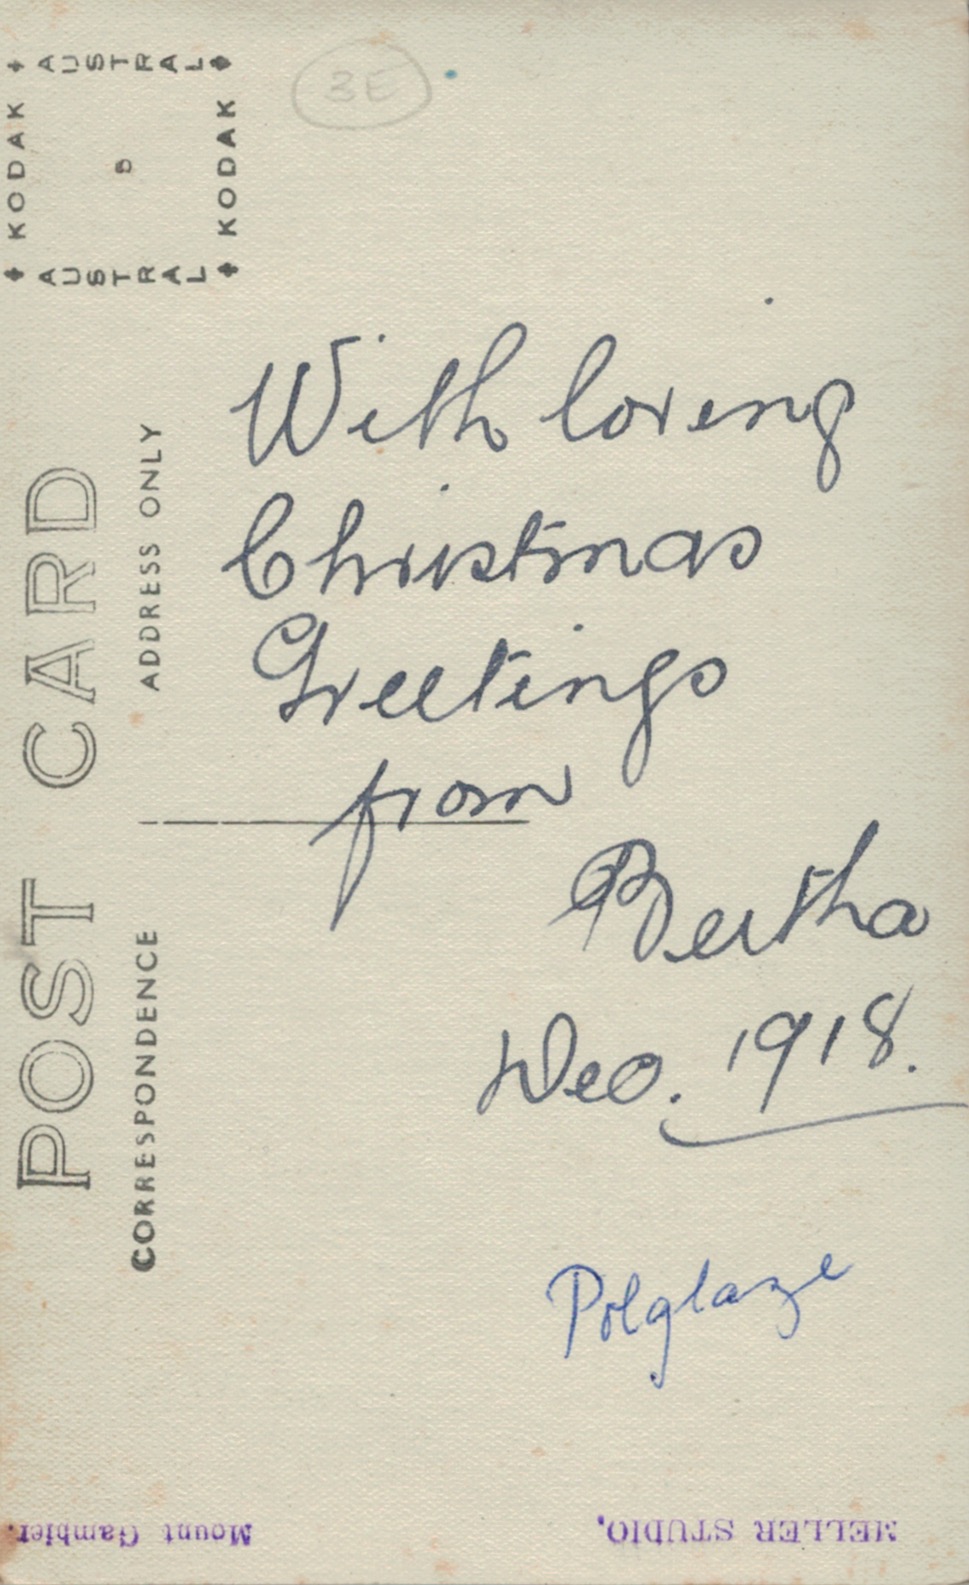 AUSTRAL
KODAK
KODAK
AUSTRAL
3E
POST CARD
CORRESPONDENCE
ADDRESS ONLY
With loving
Christmas
Greetings
from
Bertha
Dec. 1918.
Polglaze
MELLER STUDIO,
Mount Gambier.